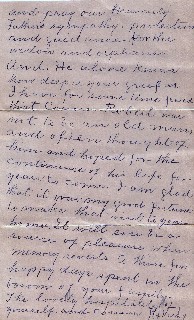 and pray our Heavenly
Father
and guidance. For the
widow and orphans
and. He alone knows
how deep your grief is
I have for some time
that
not to be an old man
and often thought of
him and hoped for the
continuance of his life for
years to come. I am glad
that it was my good fortune
to
home. It will ever be a
source of pleasure when
memory reverts to those few
happy days spent in the
bosom of your family.
The lovely hospitality of
yourself and